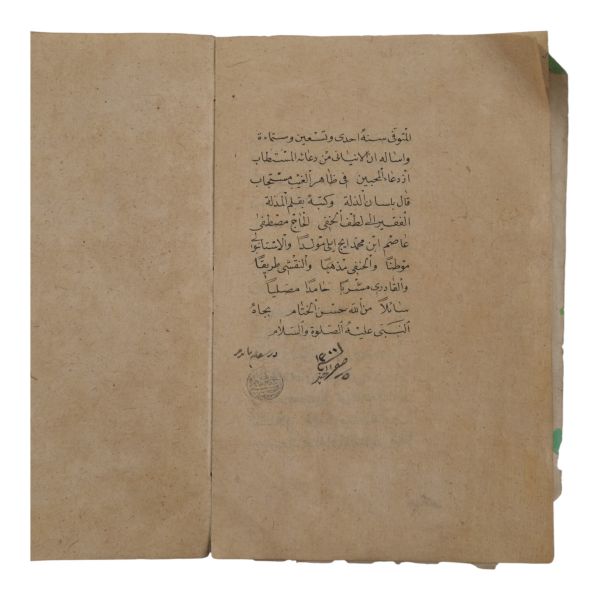 المتوفى سنة احدى وتسعين وستمائة
واساله ان لا ينسانى من دعائه المستطاب
اذ دعاء المحبين فى ظاهر الغيب مستجاب
قال بلسان الذلة وكتبه بقلم المذلة
الفقير الى لطف الخفى الحاج مصطفى
عاصم ابن محمد ايلى مولداً والاستانبولى
موطناً والحنفى مذهباً والنقشى طريقاً
والقادرى مشرباً حامداً مصلياً
سائلاً من الله حسن الختام بجاه
النبى عليه الصلوة والسلام
در
صفر الخير
١٣٠٠